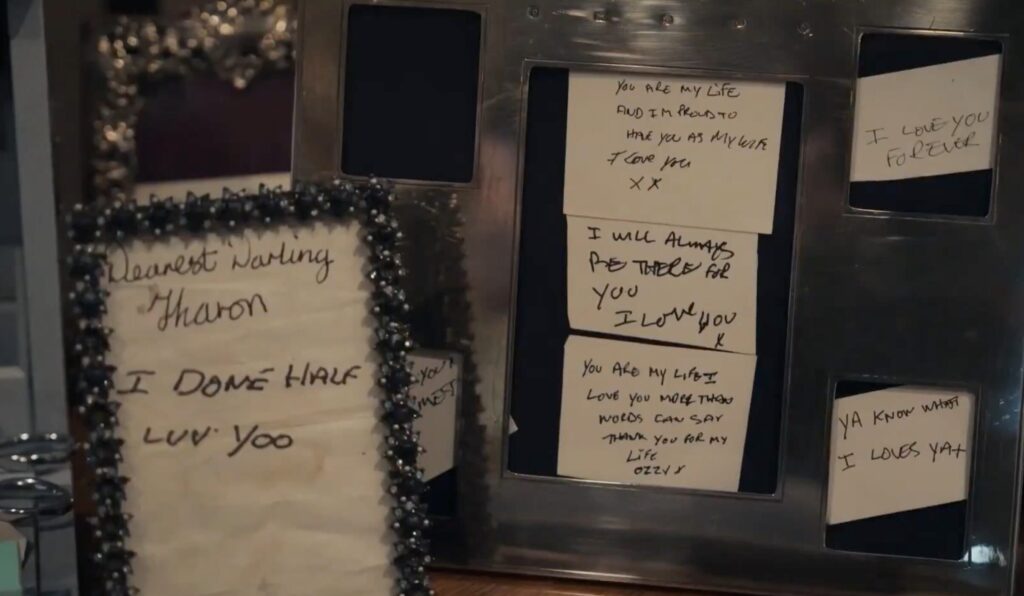 Dearest Darling
Sharon
I DONE HALF
LUV YOO
YOU ARE MY LiFE
AND IM PROUD TO
HAVE YOU AS MY WIFE
I love you
XX
I WILL ALWAYS
BE THERE FOR
YOU
I LOVE YOU
X
YOU ARE MY LIFE I
LOVE YOU MORE THEN
WORDS CAN SAY
THANK YOU FOR MY
LIFE
OZZY X
I LOVE YOU
FOREVER
YA KNOW WHAT
I LOVES YA+